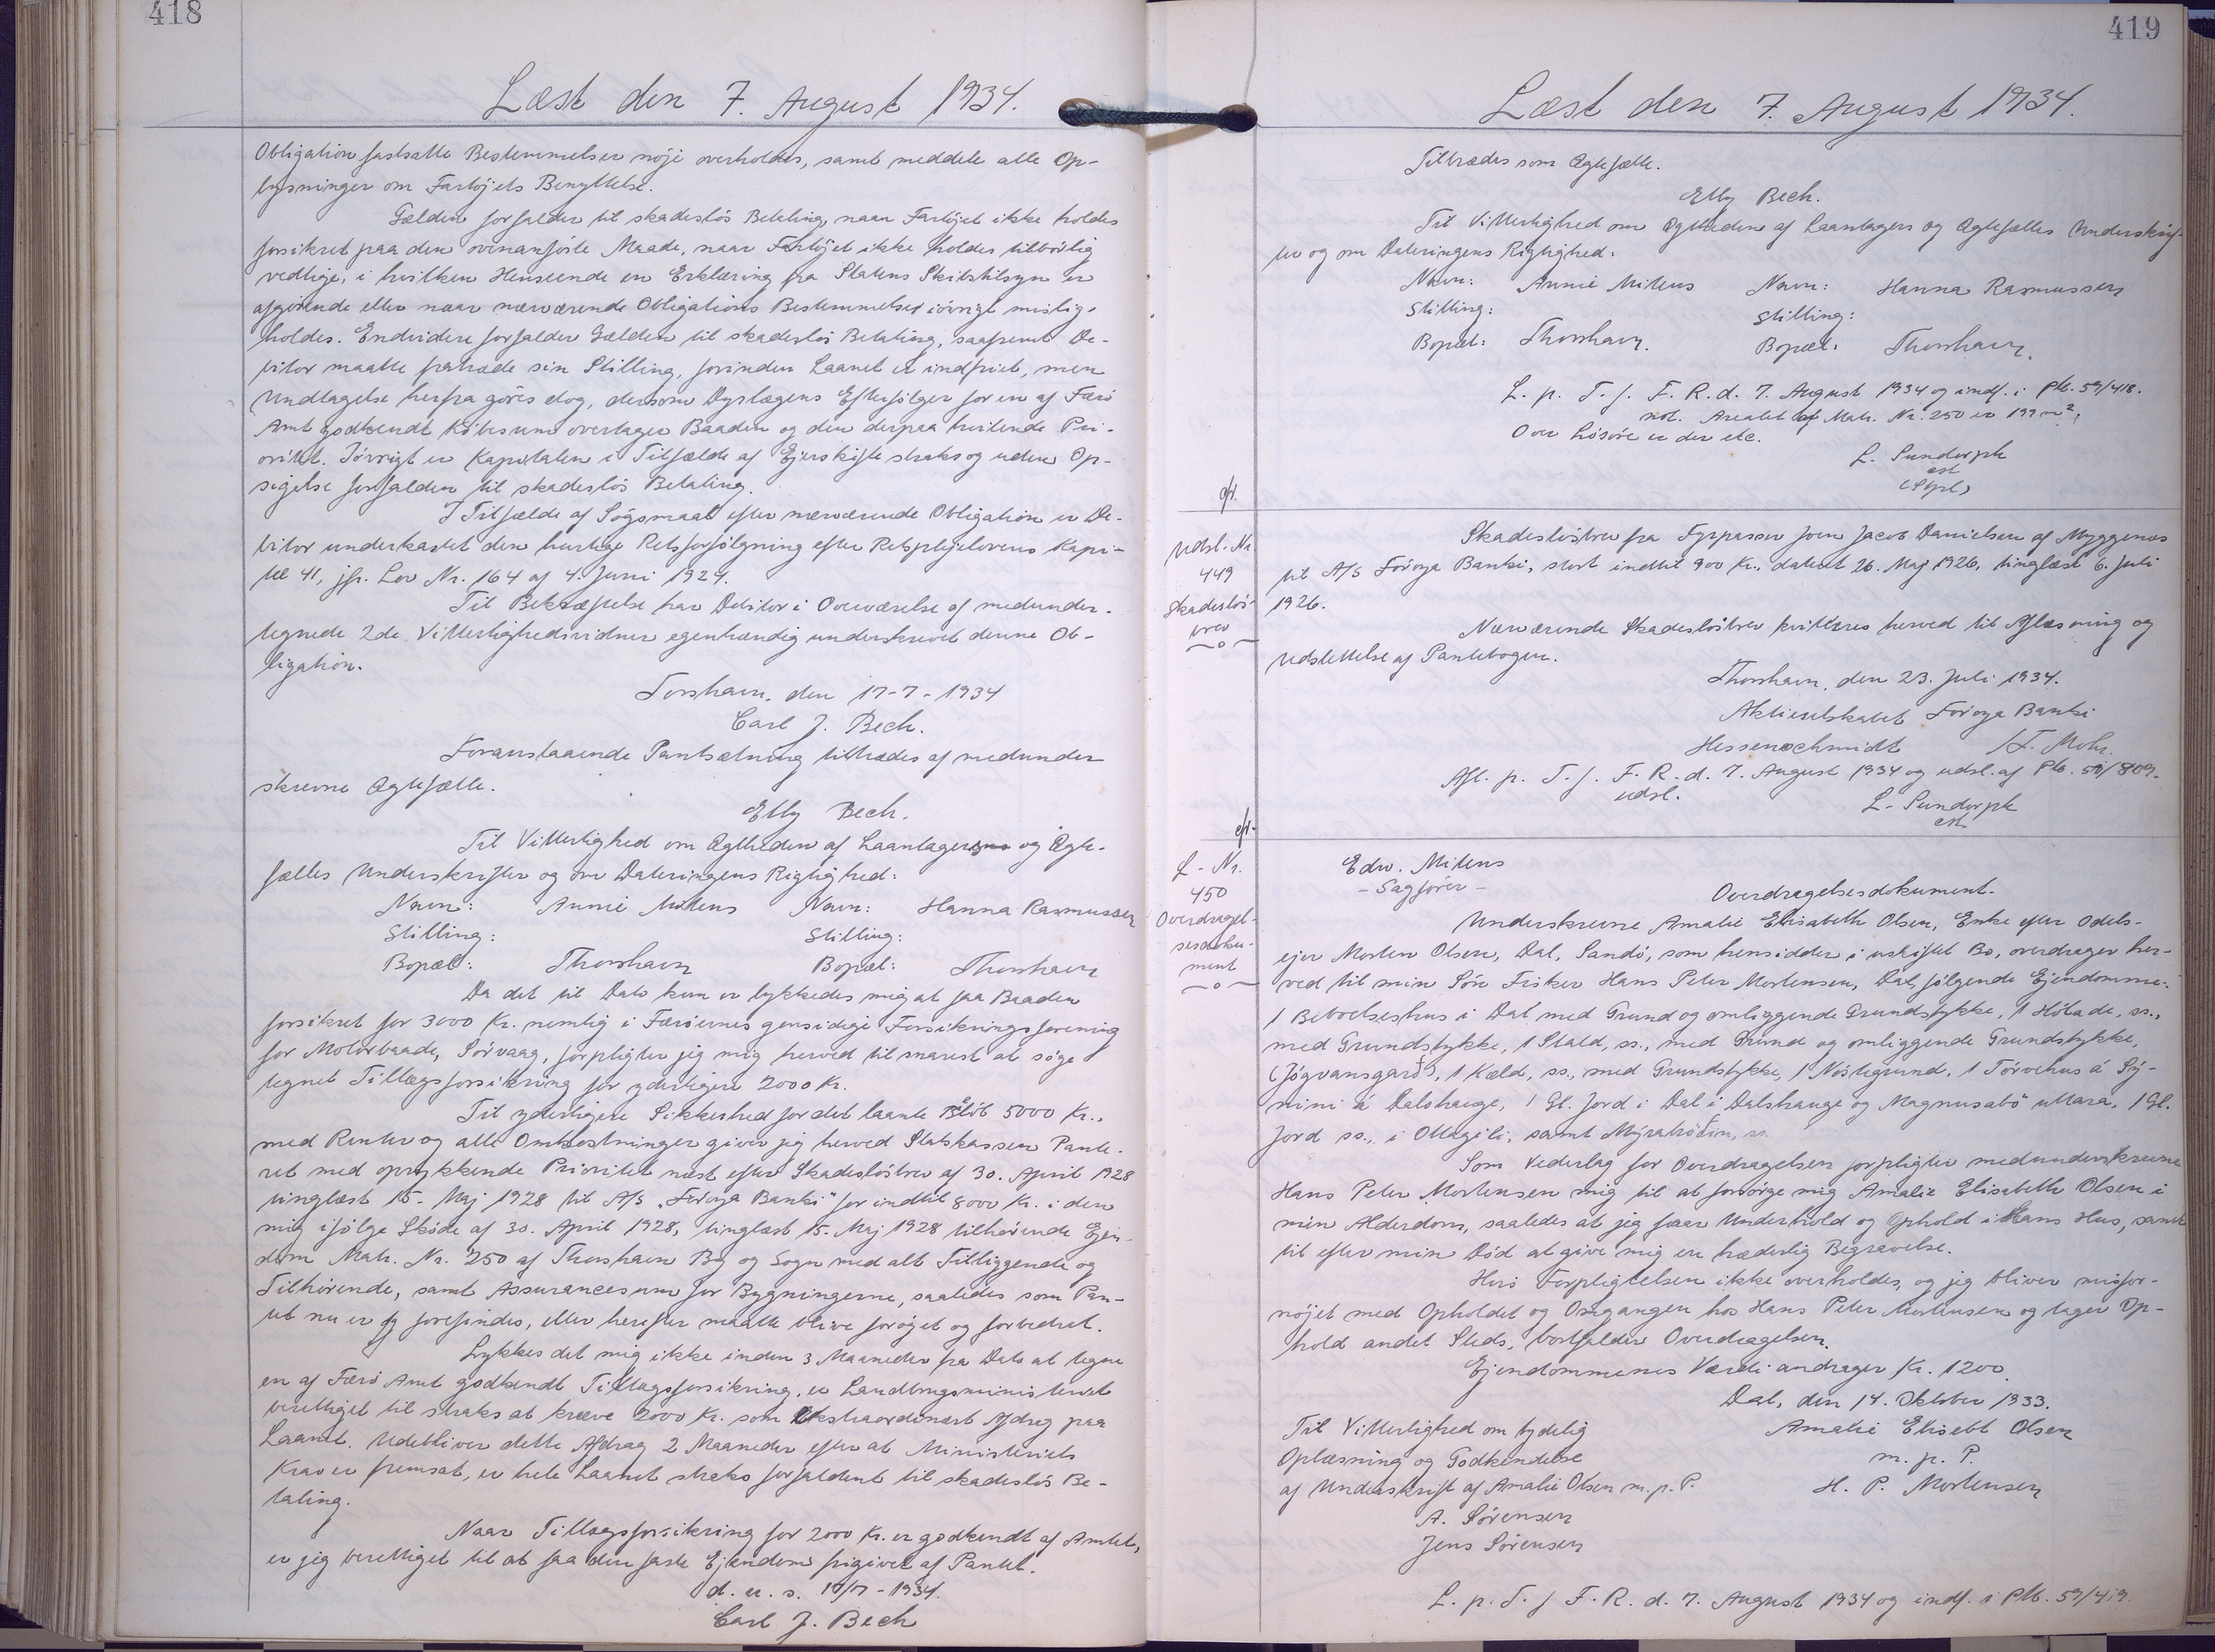 418
Læst den 7. August 1934.
Obligation fastsatte Bestemmelser nöje overholdes, samt meddele alle Op-
lysninger om Fartöjets Benyttelse.
Gælden forfalder til skadeslös Betaling, naar Fartöjet ikke holdes
forsikret paa den ovenanförte Maade, naar Fartöjet ikke holdes tilbörlig
vedlige, i hvilken Henseende en Erklæring fra Statens Skibstilsyn er
afgörende eller naar nærværende Obligations Bestemmelser iövrigt mislig-
holdes. Endvidere forfalder Gælden til skadeslös Betaling, saafremt De-
bitor maatte fratræde sin Stilling, forinden Laanet er indfriet, men
Undtagelse herfra göres dog, dersom Dyrlægens Efterfölger for en af Færö
Amt godkendt Köbesum overtager Baaden og den derpaa hvilende Pri-
oritet. Iövrigt er Kapitalen i Tilfælde af Ejerskifte straks og uden Op-
sigelse forfalden til skadeslös Betaling.
I Tilfælde af Sögsmaal efter nærværende Obligation er De-
bitor underkastet den hurtige Retsforfölgning efter Retsplejelovens Kapi-
tel 41, jfr. Lov Nr. 164 af 4. Juni 1924.
Til Bekræftelse har Debitor i Overværelse af medunder-
tegnede 2de Vitterlighedsvidner egenhændig underskrevet denne Ob-
ligation.
Torshavn, den 17-7-1934
Carl J. Bech.
Foranstaaende Pantsætning tiltrædes af medunder
skrevne Ægtefælle.
Elly Bech.
Til Vitterlighed om Ægtheden af Laantagers og Ægte-
fælles Underskrifter og om Dateringens Rigtighed:
Navn: Annie Mitens Navn: Hanna Rasmussen
Stilling: Stilling:
Bopæl: Thorshavn Bopæl: Thorshavn
Da det til Dato kun er lykkedes mig at faa Baaden
forsikret for 3000 Kr. nemlig i Færöernes gensidige Forsikringsforening
for Motorbaade, Sörvaag, forpligter jeg mig herved til snarest at söge
tegnet Tillægsforsikring for yderligere 2000 Kr.
Til yderligere Sikkerhed for det laante Belöb 5000 Kr.,
med Renter og alle Omkostninger giver jeg herved Statskassen Pante-
ret med oprykkende Prioritet næst efter Skadeslösbrev af 30. April 1928
tinglæst 15. Maj 1928 til A/S "Föroya Banki" for indtil 8000 Kr. i den
mig ifölge Sköde af 30. April 1928, tinglæst 15. Maj 1928 tilhörende Ejen-
dom Matr. Nr. 250 af Thorshavn By og Sogn med alt Tilliggende og
Tilhörende, samt Assurancesum for Bygningerne, saaledes som Pan-
tet nu er og forefindes, eller herefter maatte blive foröget og forbedret.
Lykkes det mig ikke inden 3 Maaneder fra Dato at tegne
en af Færö Amt godkendt Tillægsforsikring, er Landbrugsministeriet
berettiget til straks at kræve 2000 Kr. som Ekstraordinært Afdrag paa
Laanet. Udebliver dette Afdrag 2 Maaneder efter at Ministeriets
Krav er fremsat, er hele Laanet straks forfaldent til skadeslös Be-
taling.
Naar Tillægsforsikring for 2000 Kr. er godkendt af Amtet,
er jeg berettiget til at faa den faste Ejendom frigivet af Pantet.
d. u. s. 17/7-1934.
Carl J. Bech
419
Læst den 7. August 1934.
Tiltrædes som Ægtefælle.
Elly Bech.
Til Vitterlighed om Ægtheden af Laantagers og Ægtefælles Underskrif-
ter og om Dateringens Rigtighed:
Navn: Annie Mitens Navn: Hanna Rasmussen
Stilling: Stilling:
Bopæl: Thorshavn. Bopæl: Thorshavn.
L. p. T. f. F. R. d. 7. August 1934 og indf. i Ptb. 59/418.
not. Arealet af Matr. Nr. 250 er 199 m².
Over Lösöre er der etc.
L. Sundorph
cst
(Stpl)
cfr.
Udsl. Nr.
449
Skadeslös-
brev
Skadeslösbrev fra Fyrpasser Joen Jacob Danielsen af Myggenæs
til A/S Föroya Banki, stort indtil 900 Kr., dateret 26. Maj 1926, tinglæst 6. Juli
1926.
Nærværende Skadeslösbrev kvitteres herved til Aflæsning og
Udslettelse af Pantebogen.
Thorshavn, den 23. Juli 1934.
Aktieselskabet Föroya Banki
Hessenschmidt /F. Mohr.
Afl. p. T. f. F. R. d. 7. August 1934 og udsl. af Ptb. 50/809.
udsl.
L. Sundorph
cst.
cfr.
L-Nr.
450
Overdragel-
sesdoku-
ment
Edw. Mitens
- Sagförer -
Overdragelsesdokument.
Underskrevne Amalie Elisabeth Olsen, Enke efter Odels-
ejer Morten Olsen, Dal, Sandö, som hensidder i uskiftet Bo, overdrager her-
ved til min Sön Fisker Hans Peter Mortensen, Dal, fölgende Ejendomme:
1 Beboelseshus i Dal med Grund og omliggende Grundstykke, 1 Hölade, ss.,
med Grundstykke, 1 Stald, ss., med Grund og omliggende Grundstykke,
(Jógvansgarð), 1 Kæld, ss., med Grundstykke, 1 Nöstegrund, 1 Törvehus á Sý-
nini á Dalshauge, 1 Gl. Jord i Dal i Dalshauge og Magnusabö uttara, 1 Gl.
Jord ss., i Ottagili, samt Mýratröðin, ss.
Som Vederlag for Overdragelsen forpligter medunderskrevne
Hans Peter Mortensen mig til at forsörge mig Amalie Elisabeth Olsen i
min Alderdom, saaledes at jeg faar Underhold og Ophold i Hans Hus, samt
til efter min Död at give mig en hæderlig Begravelse.
Hvis Forpligtelsen ikke overholdes, og jeg bliver misfor-
nöjet med Opholdet og Omgangen hos Hans Peter Mortensen og tager Op-
hold andet Steds, bortfalder Overdragelsen.
Ejendommenes Værdi andrager Kr. 1200.
Dal, den 14. Oktober 1933.
Til Vitterlighed om tydelig Amalie Elisebt Olsen
Oplæsning og Godkendelse m. p. P.
af Underskrift af Amalie Olsen m. p. P. H. P. Mortensen
A. Sörensen
Jens Sörensen
L. p. T. f. F. R. d. 7. August 1934 og indf. i Ptb. 59/419.